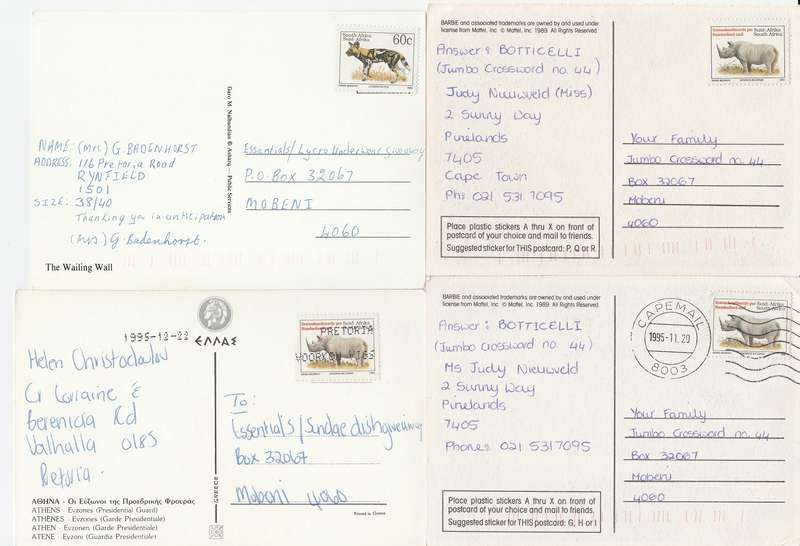 South Africa
Suid-Afrika
60c
Garo M. Nalbandian © Asharq — Public Services
NAME: (Mrs.) G. BADENHORST
ADDRESS: 116 Pretoria Road
RYNFIELD
1501
SIZE: 38/40
Thanking you in anticipation
(Mrs) G. Badenhorst.
Essentials/Lycra Underwear Giveaway
P.O. Box 32067
MOBENI
4060
The Wailing Wall
BARBIE and associated trademarks are owned by and used under
license from Mattel, Inc. © Mattel, Inc. 1989. All Rights Reserved
Answer: BOTTICELLI
(Jumbo Crossword no. 44)
Judy Nieuwveld (Miss)
2 Sunny Way
Pinelands
7405
Cape Town
Ph: 021 531 7095
Place plastic stickers A thru X on front of
postcard of your choice and mail to friends.
Suggested sticker for THIS postcard: P, Q or R.
Standardised mail
South Africa
Suid-Afrika
Your Family
Jumbo Crossword no. 44
Box 32067
Mobeni
4060
1995-12-22
ΕΛΛΑΣ
Helen Christodoulou
Cr Lorraine &
Berenicia Rd
Valhalla 0185
Pretoria.
ΑΘΗΝΑ - Οι Εύζωνοι της Προεδρικής Φρουράς
ATHENS - Evzones (Presidential Guard)
ATHÈNES - Evzones (Garde Presidentiale)
ATHEN - Evzonen (Garde Presidentiale)
ATENE - Evzoni (Guardia Presidentiale)
GREECE
South Africa
Suid-Afrika
PRETORIA
VOORKOM VIGS
To:
Essentials/Sundae dish giveaway
Box 32067
Mobeni 4060
Printed in Greece
BARBIE and associated trademarks are owned by and used under
license from Mattel, Inc. © Mattel, Inc. 1989. All Rights Reserved
Answer: BOTTICELLI
(Jumbo Crossword no. 44)
Ms Judy Nieuwveld
2 Sunny Way
Pinelands
7405
Phone: 021 5317095
Place plastic stickers A thru X on front of
postcard of your choice and mail to friends.
Suggested sticker for THIS postcard: G, H or I
CAPEMAIL
1995-11-20
8003
South Africa
Suid-Afrika
Your Family
Jumbo Crossword no. 44
Box 32067
Mobeni
4060